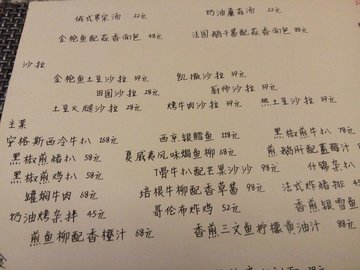 俄式罗宋汤 22元 奶油蘑菇汤 22元
金枪鱼配蒜香面包 48元 法国鹅干酱配蒜香面包
沙拉
金枪鱼土豆沙拉 39元 凯撒沙拉 39元
田园沙拉 28元 厨师沙拉 39元
土豆火腿沙拉 28元 烤牛肉沙拉 39元 热土豆沙拉
主菜
安格斯西冷牛扒 168元 西京银鳕鱼 118元 黑椒煎牛扒 78元
黑椒煎猪扒 58元 夏威夷风味焗鱼柳 68元 煎鹅肝配蓝莓汁
黑椒煎鸡扒 58元 T骨牛扒配芒果沙沙 98元 什锦菜扒
罐焖牛肉 68元 培根牛柳配香草酱 98元 法式炸猪排
奶油烤杂拌 45元 哥伦布炸鸡 52元 香煎银雪鱼
煎鱼柳配香橙汁 68元 香煎三文鱼柠檬黄油汁 88元